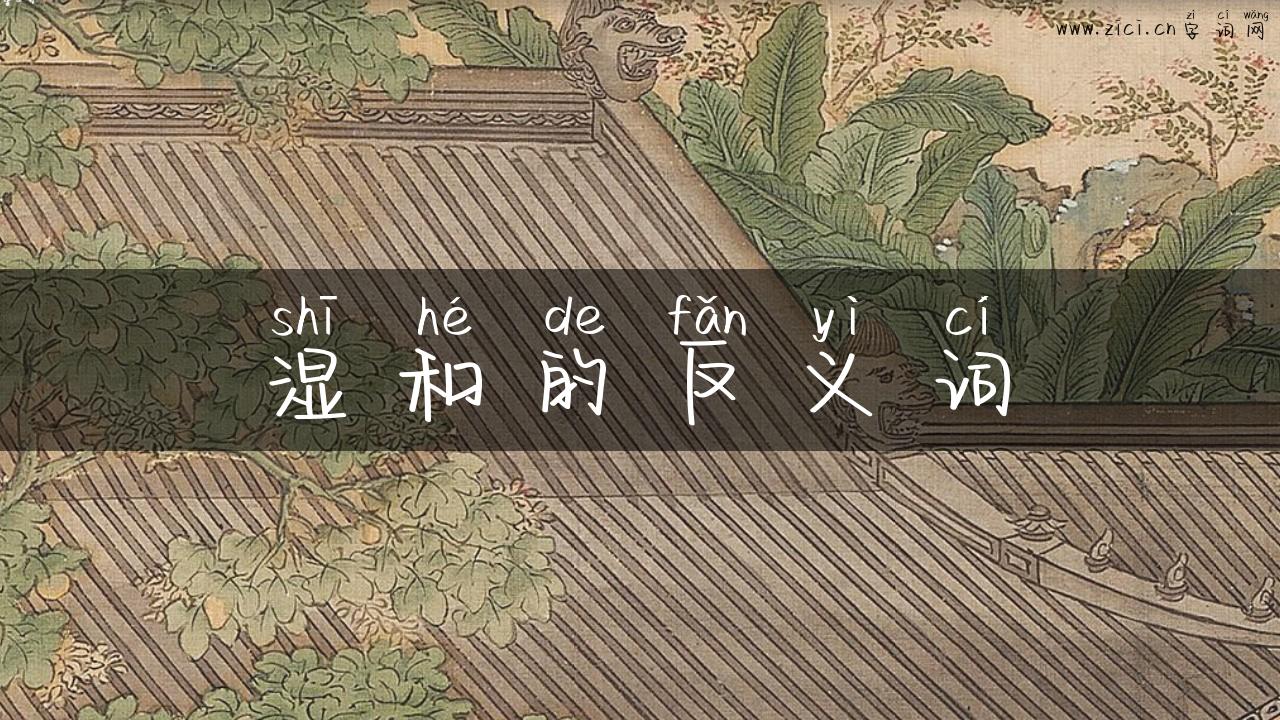 zì cí wǎng
www.zici.cn 字词网
shī hé de fǎn yì cí
湿和的反义词